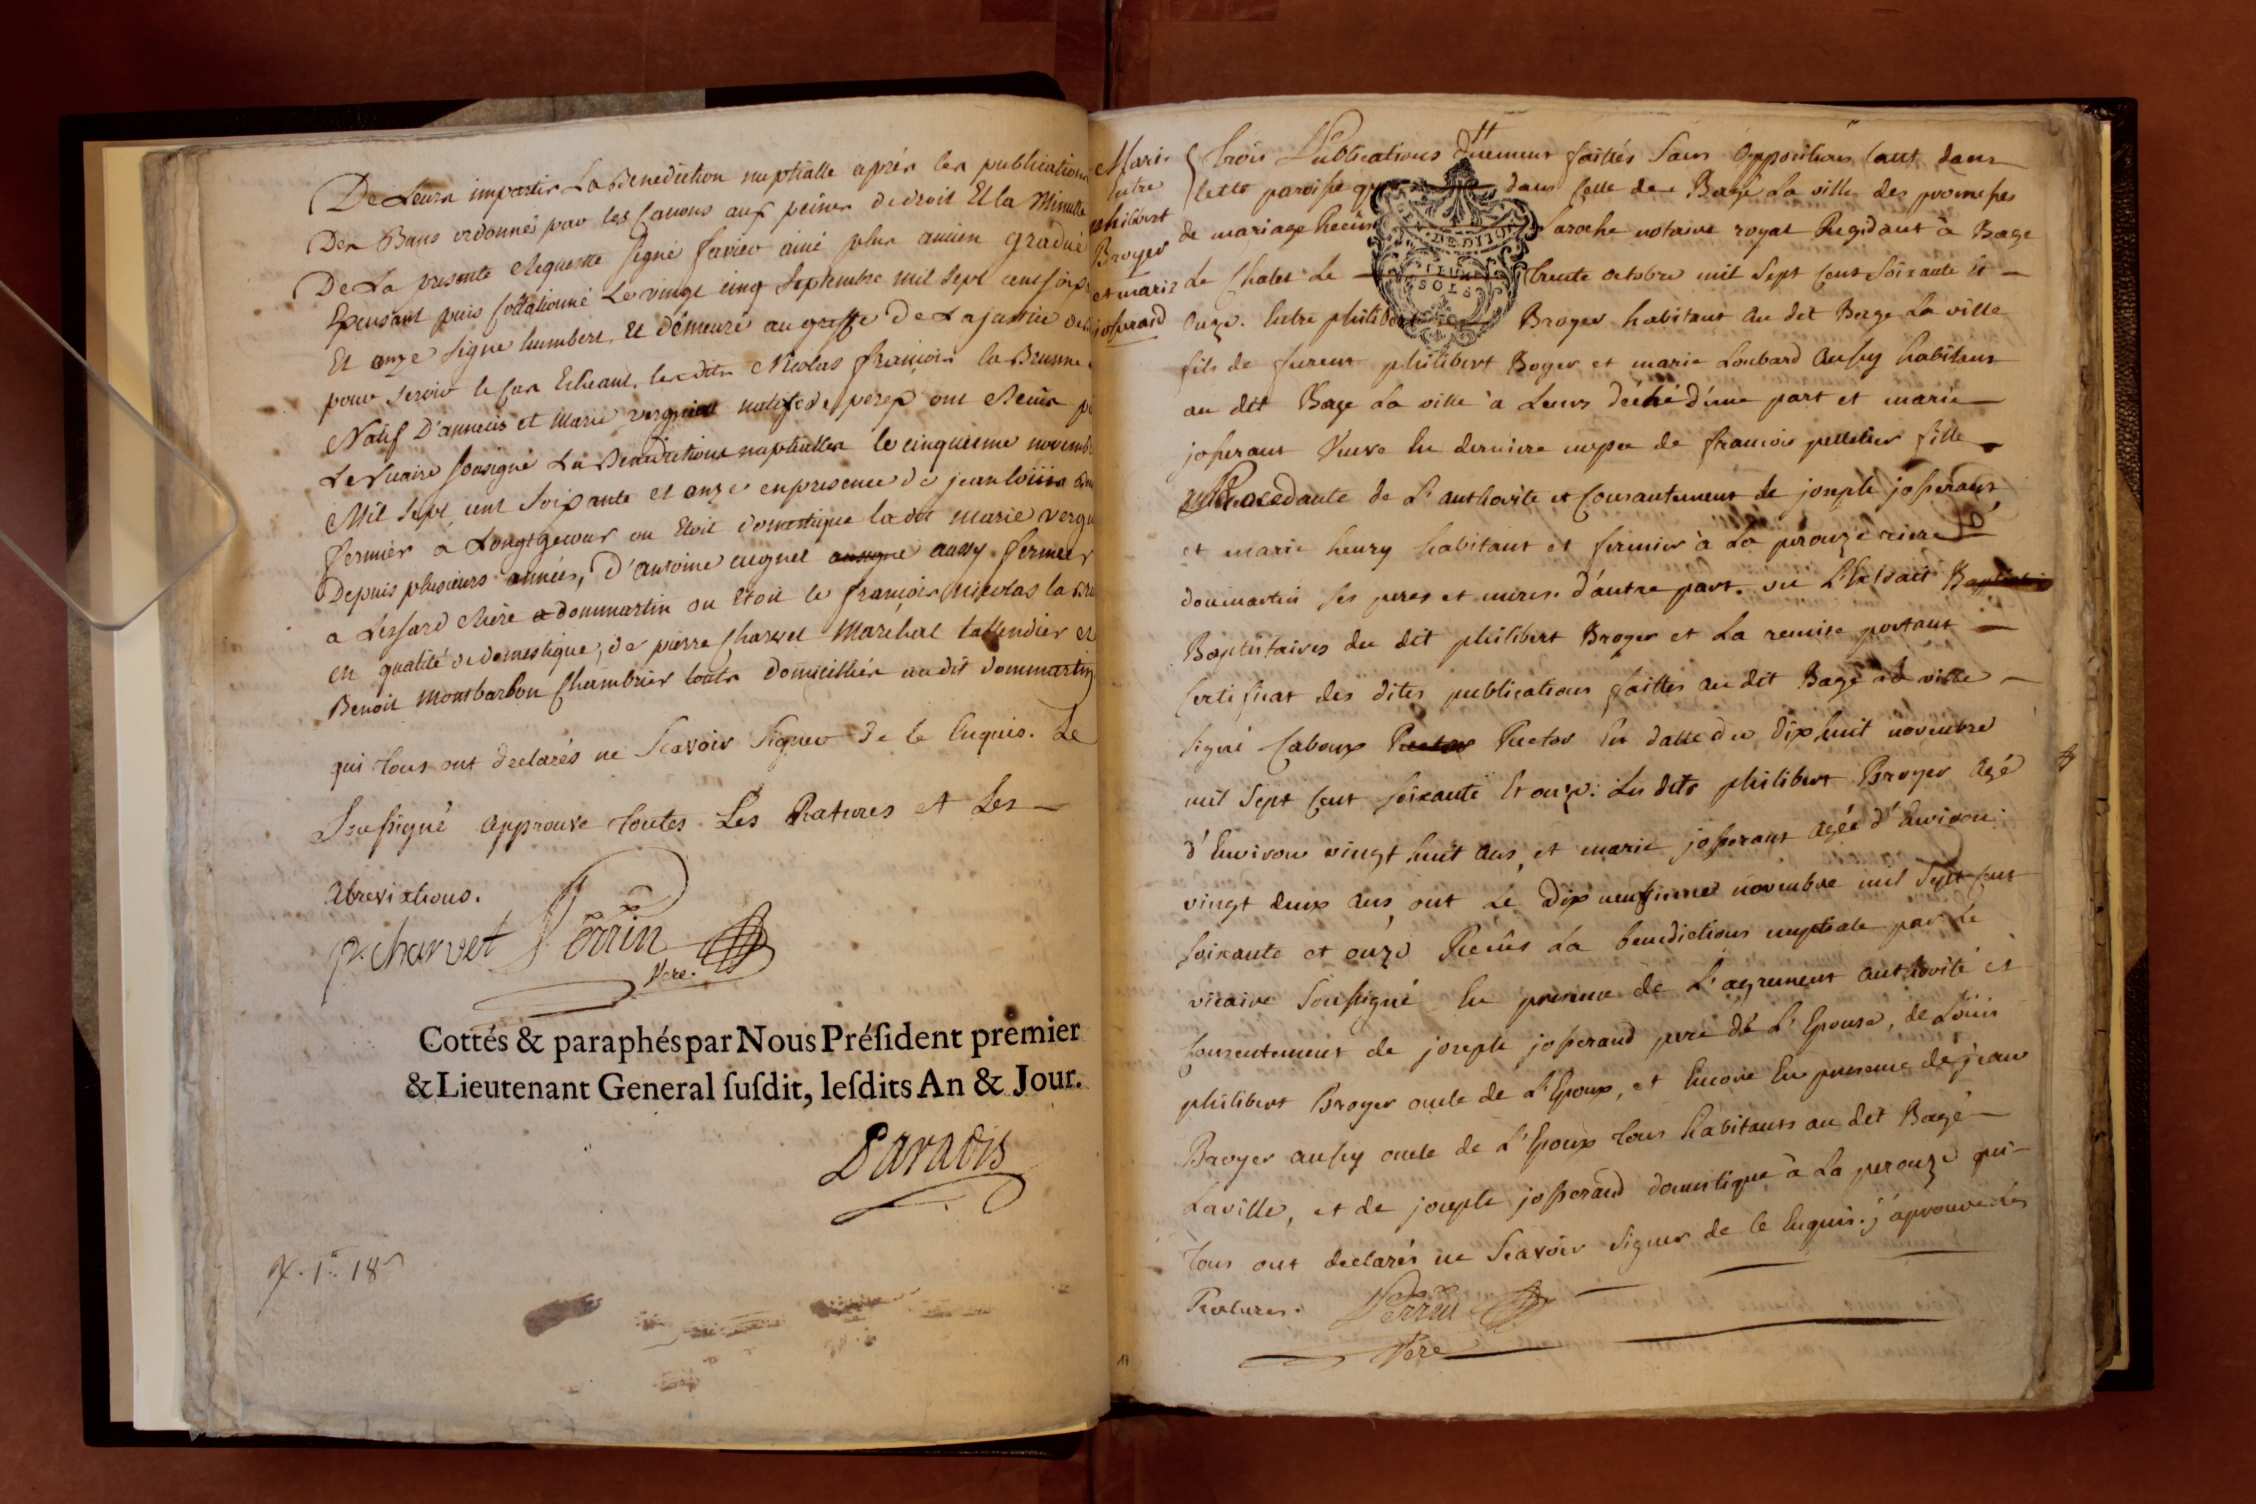 De Leurs impartir La Benediction nuptialle après les publications
Des Bans ordonnés par les Canons aux peines de droit Et la Minutte
De La presente Requeste signé favier ainé plus ancien gradué
Exposant puis collationné Le vingt cinq Septembre mil sept cens soix
Et onze signé humbert, et démeuré au greffe De La justice
pour servir le cas Echeant. lesdits Nicolas françois la Brunne
Natif D'annecis et Marie vergniet ont Recus
Le vicaire soussigné La Benediction nuptialles le cinquieme novemb
Mil sept cent soixante et onze en presence de jean louis
fermier a Longtgevour ou Etoit domestique la dit marie vergn
Depuis plusieurs années, d'antoine cugnet aussy fermier
a Lessard Riere a dommartin ou Etoit le françois nicolas la Bru
en qualité de domestique, de pierre Charvet Maréchal tallendier et
Benoit Montbarbon Chambrier touts domiciliés au dit dommartin
qui tous ont declarés ne Scavoir Signer de ce Enquis. Le
Soussigné approuve toutes Les Ratures et Les
Abreviations.
p. charvet Perrin
Vcre.
Cottés & paraphés par Nous Préſident premier
& Lieutenant General ſuſdit, leſdits An & Jour.
Paradis
Mari.
entre
philibert
Broyer
et marie
josserand
Trois Publications duement faittes sans Oppositions tant dans
Cette paroisse dans Celle de Bagé La ville des promesses
de mariage Recües Laroche notaire royal Residant à Bage
Le Chatel Le trente octobre mil sept Cent soixante Et
Onze. Entre philibert Broyer habitant au dit Bage La ville
fils de furent philibert Boyer et marie Loubard Aussy habitans
au dit Bage La ville à Leurs déché d'une part et marie
josserant Veuve En derniere nopce de francois pelletier fille
Procedante de L'authorite et Consantement de joseph josserant
et marie henry habitant et fermier à La pérouze riere
donmartin ses peres et meres d'autre part. vu L'Extrait
Baptistaires du dit philibert Broyer et La remise portant
Certificat des dites publications faittes au dit Bagé La ville
signé Caboux Rector En datte du dix huit novembre
mil sept Cent soixante Et onze. Les dits philibert Broyer Agé
d'Environ vingt huit ans, et marie josserant agée d'Environ
vingt deux ans, ont Le dix neufieme novembre mil sept Cent
soixante et onze Recûs La benediction nuptiale par Le
vicaire soussigné En presence de L'agrement authorité et
Consentement de joseph josserand pere de L'Epouse, de Loüis
philibert Broyer oncle de L'Epoux, et Encore En presence de jean
Broyer aussy oncle de L'Epoux tous habitants au dit Bagé
Laville, et de joseph josserand domestique à La perouze qui
tous ont declarés ne Scavoir signer de ce Enquis. j'aprouve Les
Ratures. Perrin
Vcre